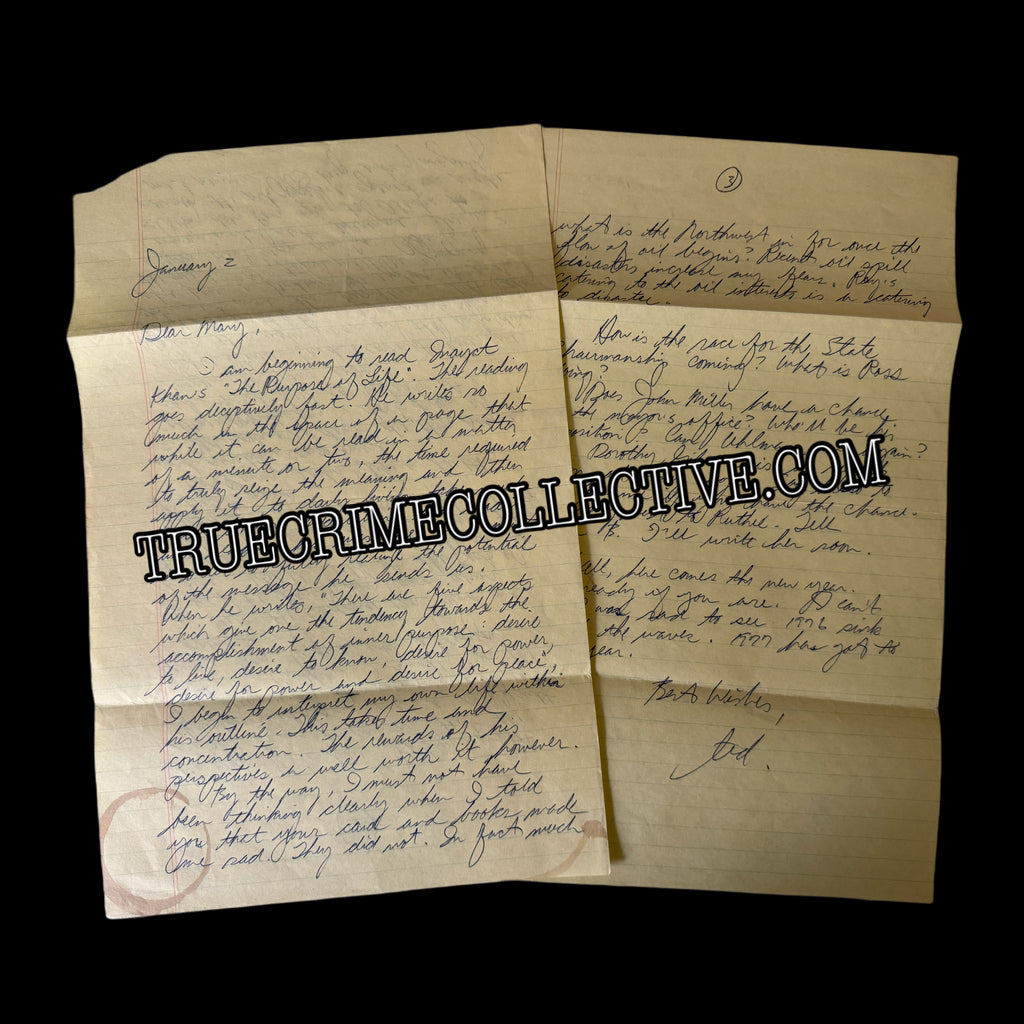 January 2
Dear Mary,
I am beginning to read Inayat
Khan's "The Purpose of Life". The reading
goes deceptively fast. He writes so
much in the space of a page that
while it can be read in a matter
of a minute or two, the time required
to truly seize the meaning and then
apply it to daily living
the potential
of the message he sends us.
When he writes, "There are five aspects
which give one the tendency towards the
accomplishment of inner purpose: desire
to live, desire to know, desire for power,
desire for power and desire for peace",
I begin to interpret my own life within
his outline. This takes time and
concentration. The rewards of his
perspectives is well worth it however.
By the way, I must not have
been thinking clearly when I told
you that your card and books made
me sad. They did not. In fact much
3
what is the Northwest in for once the
flow of oil begins? Recent oil spill
disasters increase my fears. Ray's
catering to the oil interests is a catering
to disaster.
How is the race for the State
Chairmanship coming? What is Ross
Does John Miller have a chance
the mayor's office? Who'll be his
Can Uhlman
Dorothy
the chance.
Ruthie. Tell
I'll write her soon.
here comes the new year.
if you are. I can't
was sad to see 1976 sink
the waves. 1977 has got to
year.
Best Wishes,
ted.
TRUECRIMECOLLECTIVE.COM